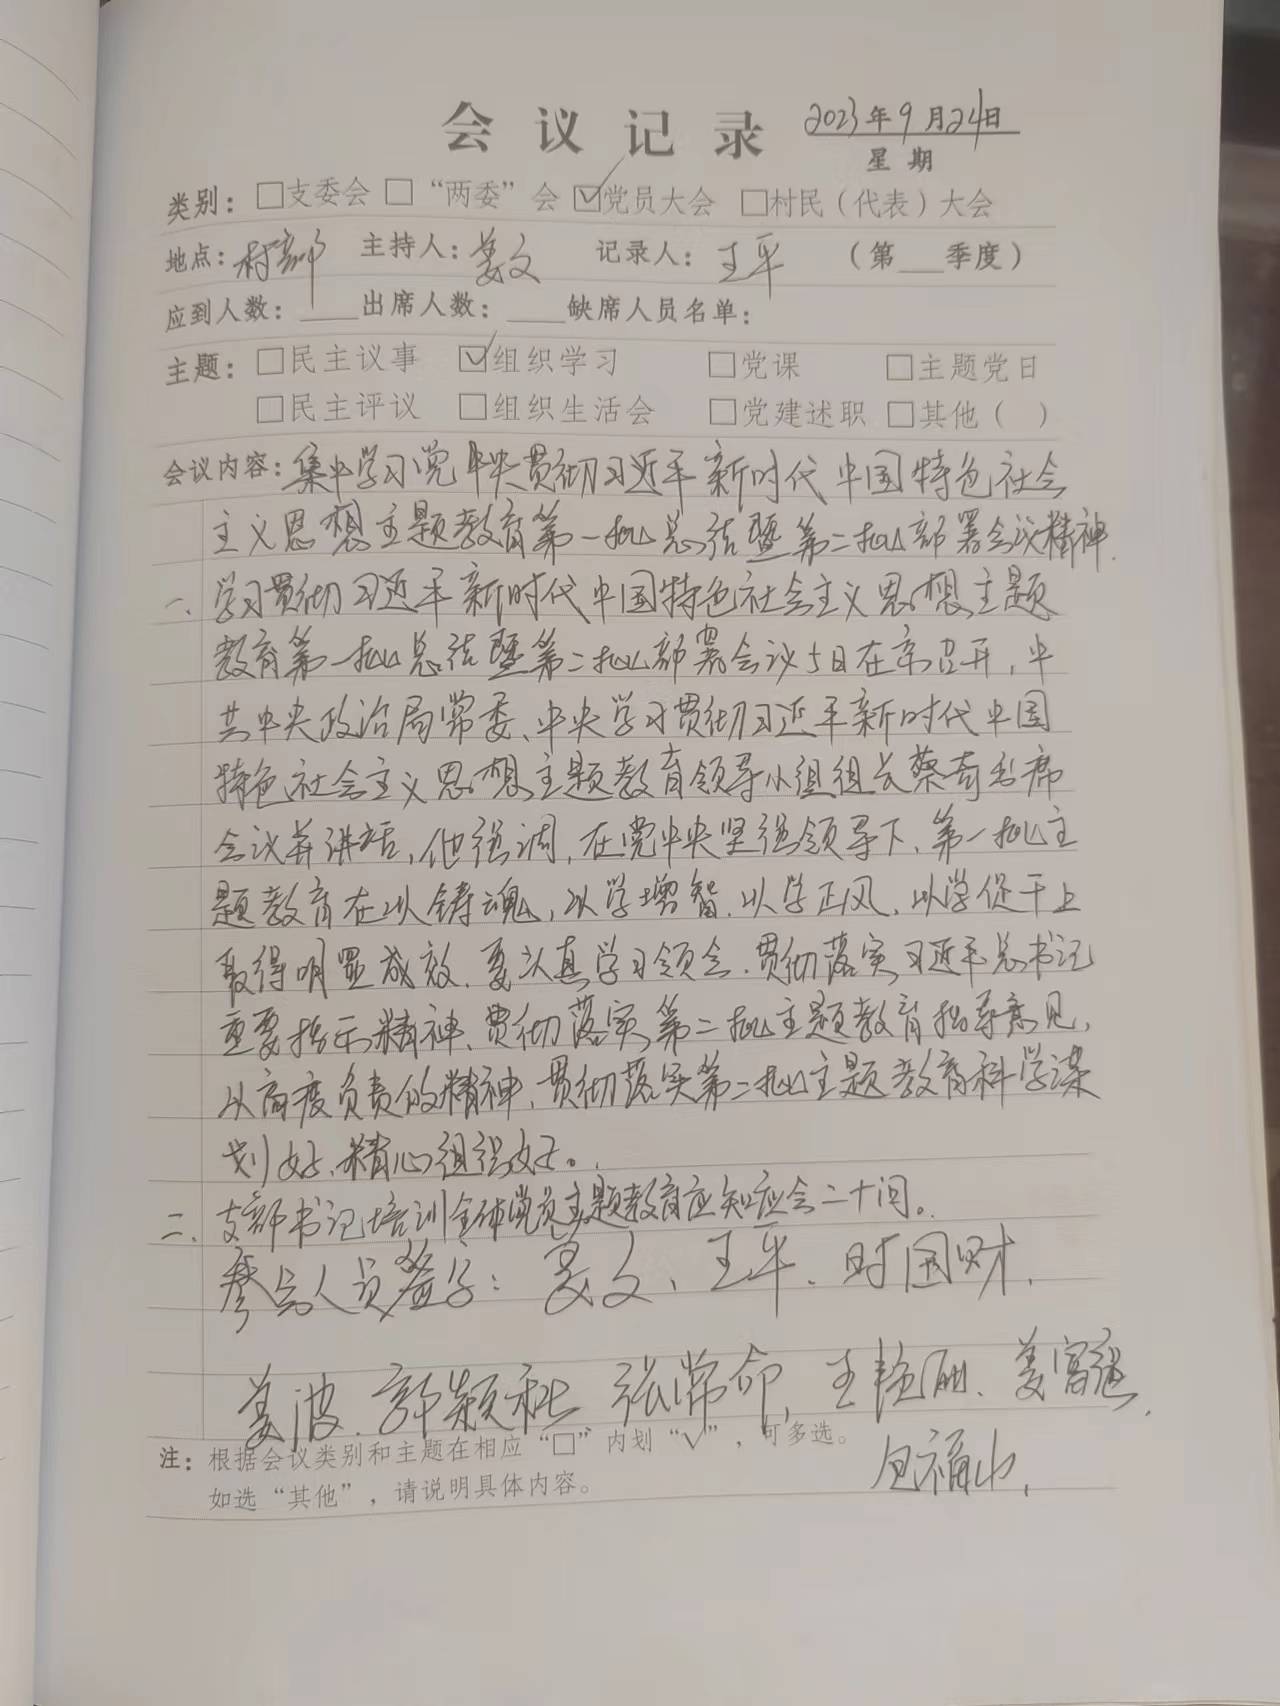 会议记录 2023年9月24日
星期
类别：□支委会 □“两委”会 ☑党员大会 □村民（代表）大会
地点：村部 主持人：姜文 记录人：王平 （第___季度）
应到人数：____出席人数：____缺席人员名单：
主题：□民主议事 ☑组织学习 □党课 □主题党日
□民主评议 □组织生活会 □党建述职 □其他（ ）
会议内容：集中学习党中央贯彻习近平新时代中国特色社会
主义思想主题教育第一批总结暨第二批部署会议精神.
一、学习贯彻习近平新时代中国特色社会主义思想主题
教育第一批总结暨第二批部署会议5日在京召开，中
共中央政治局常委、中央学习贯彻习近平新时代中国
特色社会主义思想主题教育领导小组组长蔡奇出席
会议并讲话，他强调，在党中央坚强领导下，第一批主
题教育在以铸魂，以学增智、以学正风、以学促干上
取得明显成效。要认真学习领会、贯彻落实习近平总书记
重要指示精神、贯彻落实第二批主题教育指导意见，
以高度负责的精神、贯彻落实第二批主题教育科学谋
划好、精心组织好。
二、支部书记培训全体党员主题教育应知应会二十问。
参会人员签字：姜文、王平、时国财、
姜波、郭颖秋 张常命、王艳丽、姜富强、
注：根据会议类别和主题在相应“□”内划“√”，可多选。
包福山、
如选“其他”，请说明具体内容。